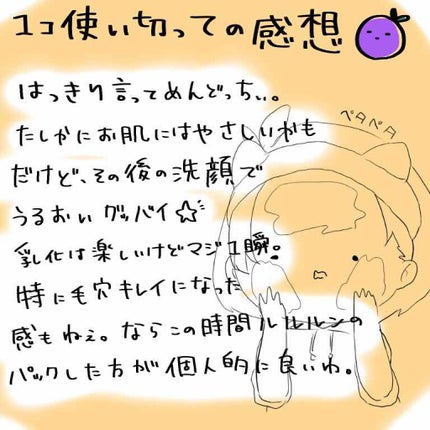 1コ使い切っての感想
はっきり言ってめんどっちぃ。
ペタペタ
たしかにお肌にはやさしいかも
だけど、その後の洗顔で
うるおいグッバイ☆
乳化は楽しいけどマジ1瞬。
特に毛穴キレイになった
感もねぇ。ならこの時間ルルルンの
パックした方が個人的に良いわ。